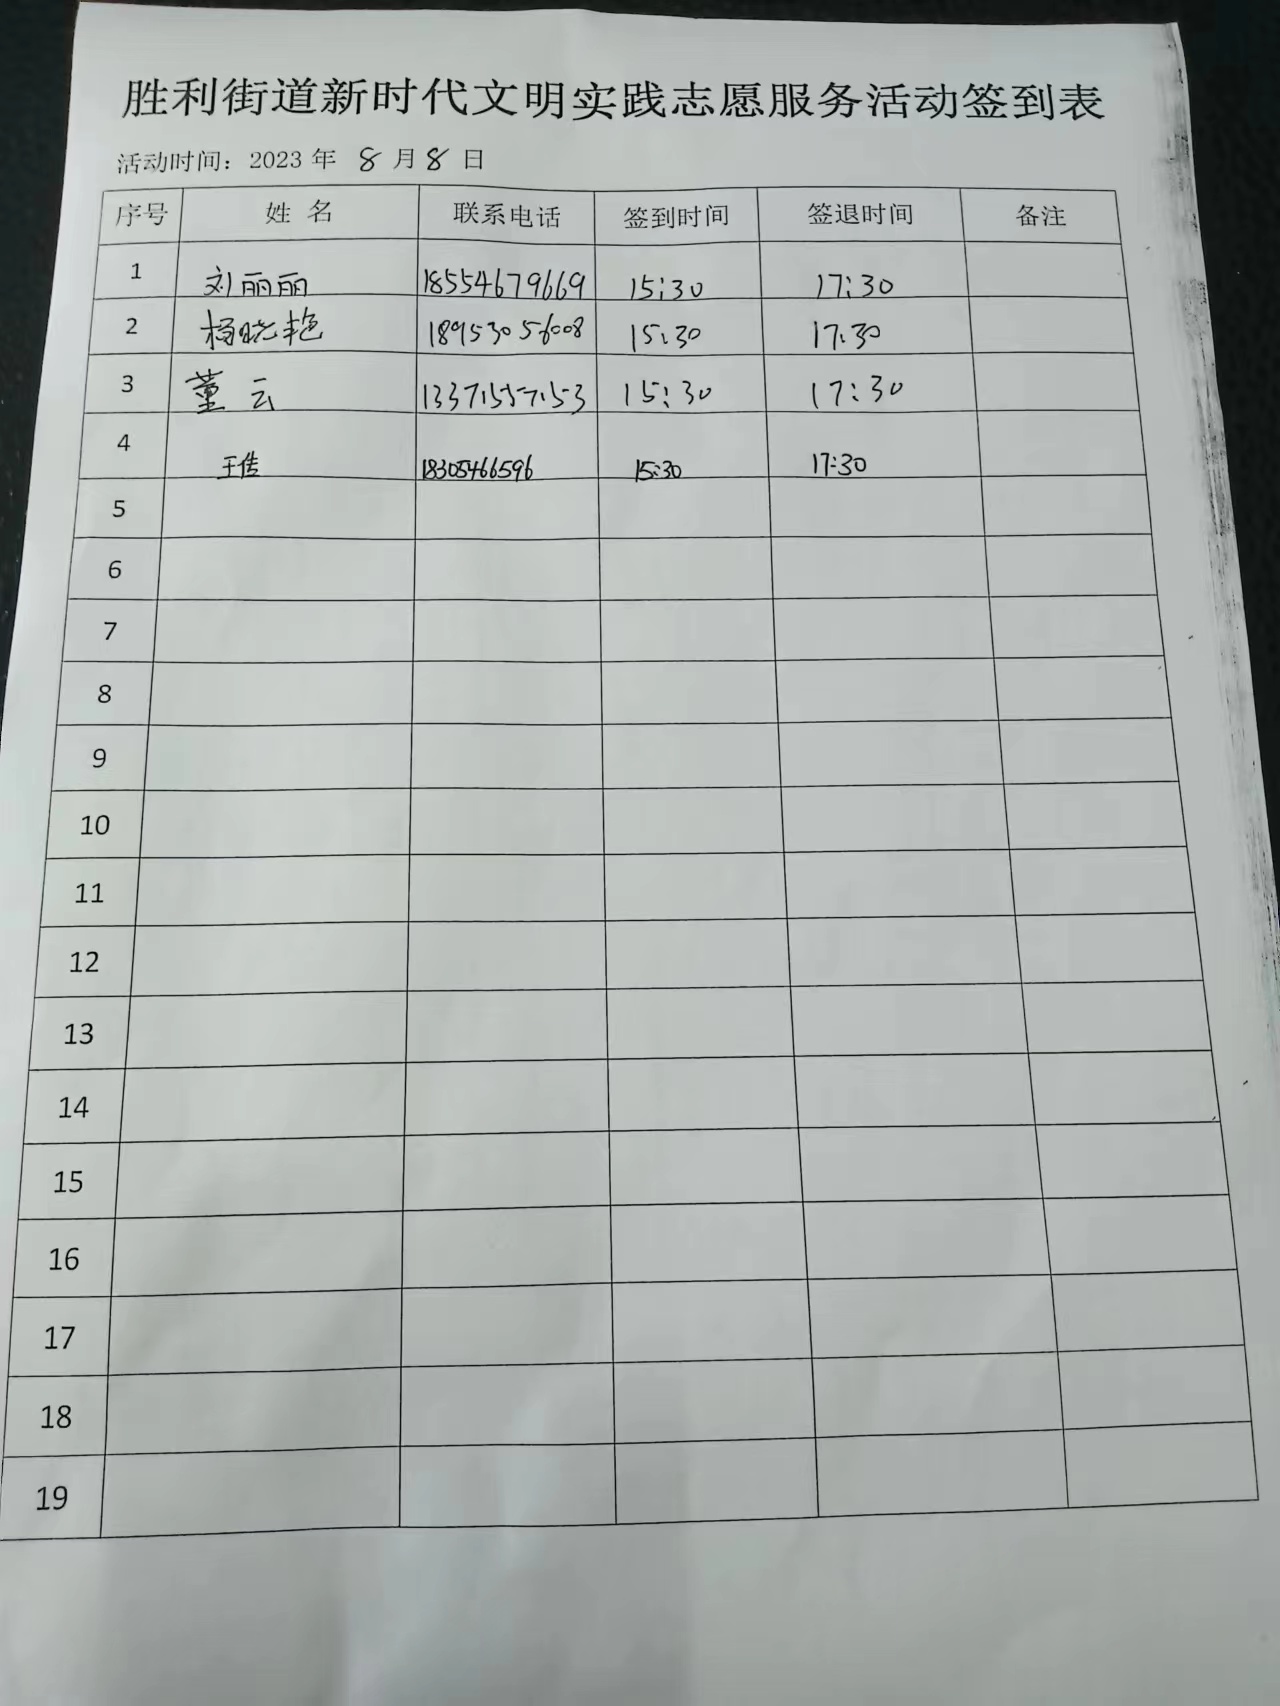 胜利街道新时代文明实践志愿服务活动签到表
活动时间：2023 年 8 月 8 日
序号 姓 名 联系电话 签到时间 签退时间 备注
1 刘丽丽 18554679669 15:30 17:30
2 杨晓艳 18953056008 15:30 17:30
3 董云 13371557153 15:30 17:30
4 王倩 18305466596 15:30 17:30
5
6
7
8
9
10
11
12
13
14
15
16
17
18
19